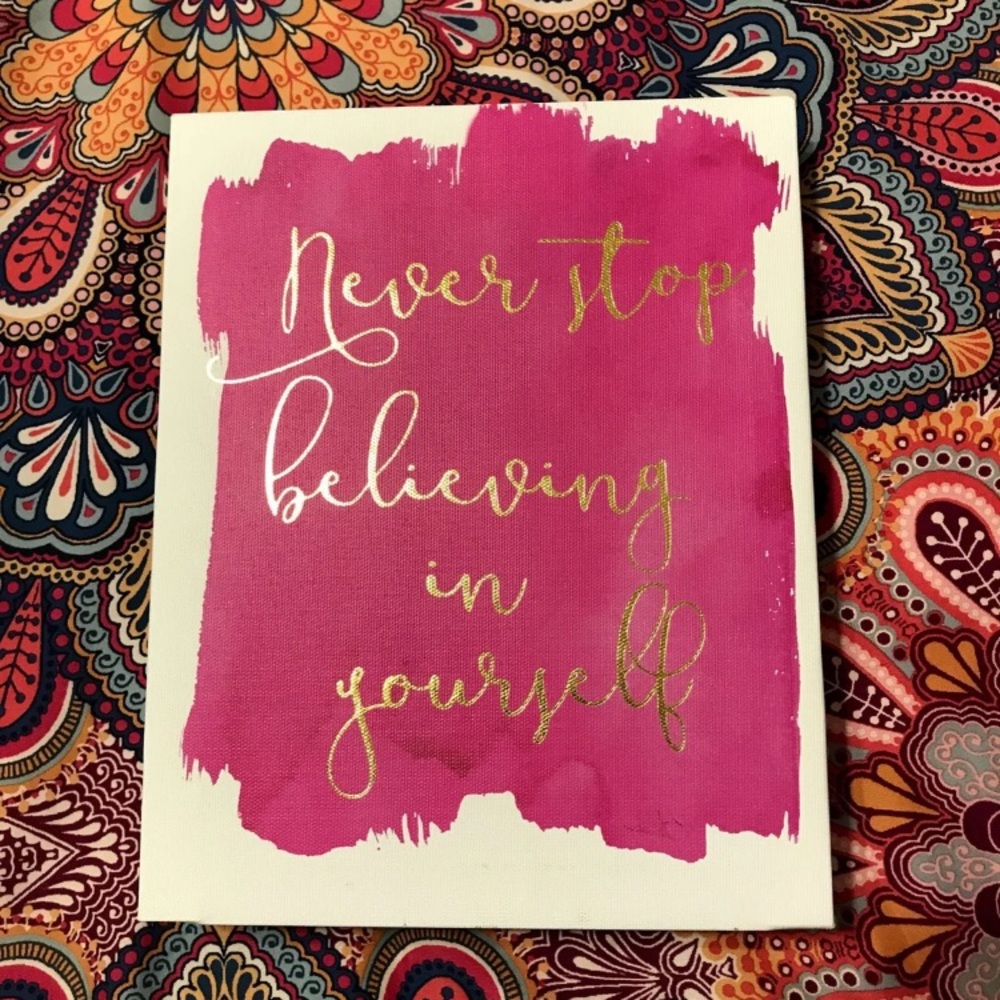 Never stop
believing
in
yourself